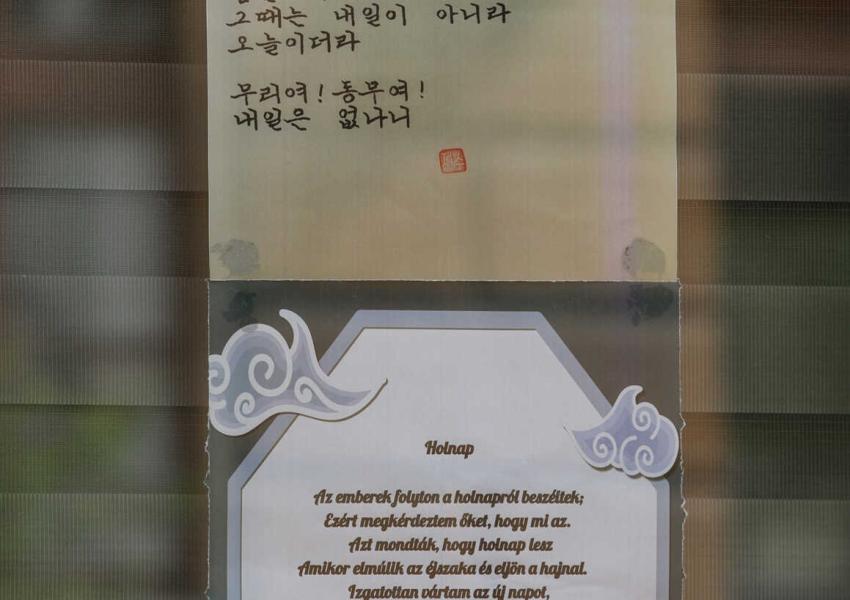 그때는 내일이 아니라
오늘이더라
무리여! 동무여!
내일은 없나니
Holnap
Az emberek folyton a holnapról beszéltek;
Ezért megkérdeztem őket, hogy mi az.
Azt mondták, hogy holnap lesz
Amikor elmúlik az éjszaka és eljön a hajnal.
Izgatottan vártam az új napot,